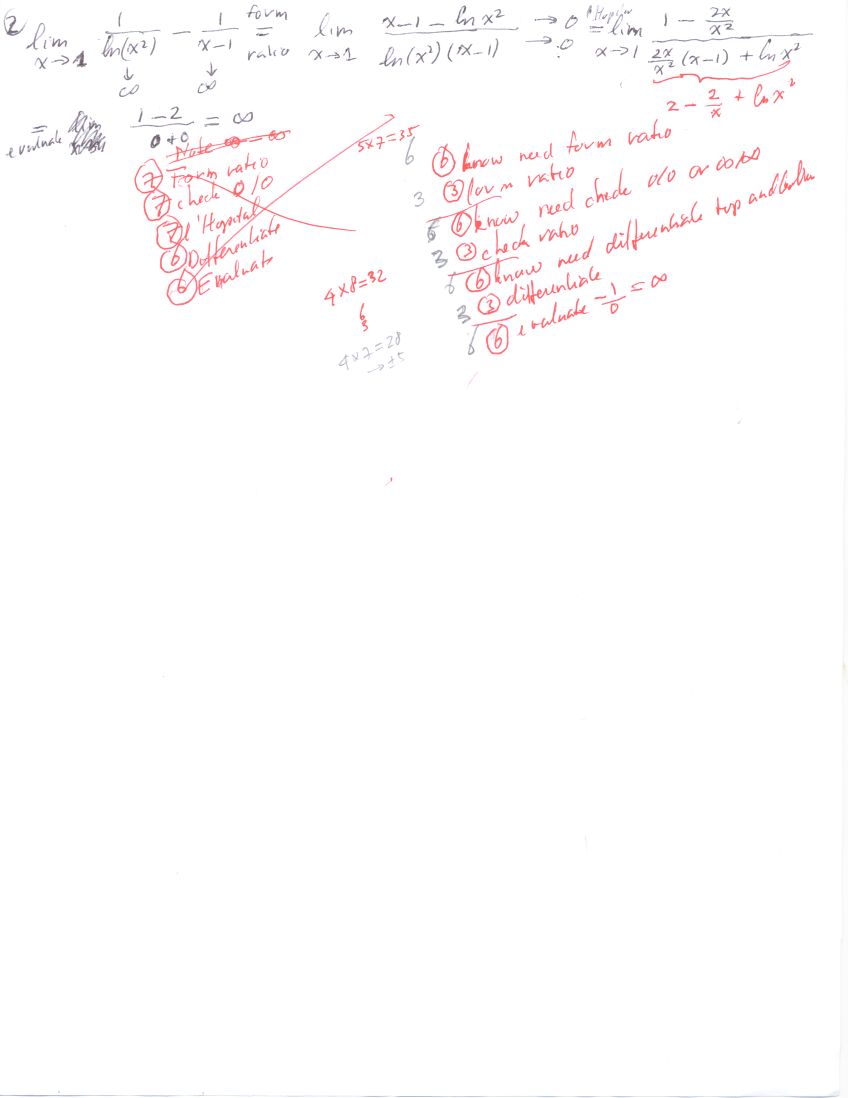 ② lim x→1 1/ln(x²) − 1/(x−1) form = ratio lim x→1 (x−1 − ln x²)/(ln(x²)(x−1)) → 0 → 0 = lim x→1 (1 − 2x/x²)/(2x/x² (x−1) + ln x²)
↓ ∞ ↓ ∞
2 − 2/x + ln x²
= evaluate (1−2)/(0+0) = ∞
Note ∞ − ∞
⑦ Form ratio
⑦ check 0/0
⑦ l'Hopital
⑥ Differentiate
⑥ Evaluate
5×7=35
4×8=32
6
3
4×7=28
→ ±5
6 ⑥ know need form ratio
3 ③ form ratio
6 ⑥ know need check 0/0 or ∞/∞
3 ③ check ratio
6 ⑥ know need differentiate top and bottom
3 ③ differentiate
6 ⑥ evaluate −1/0 = ∞